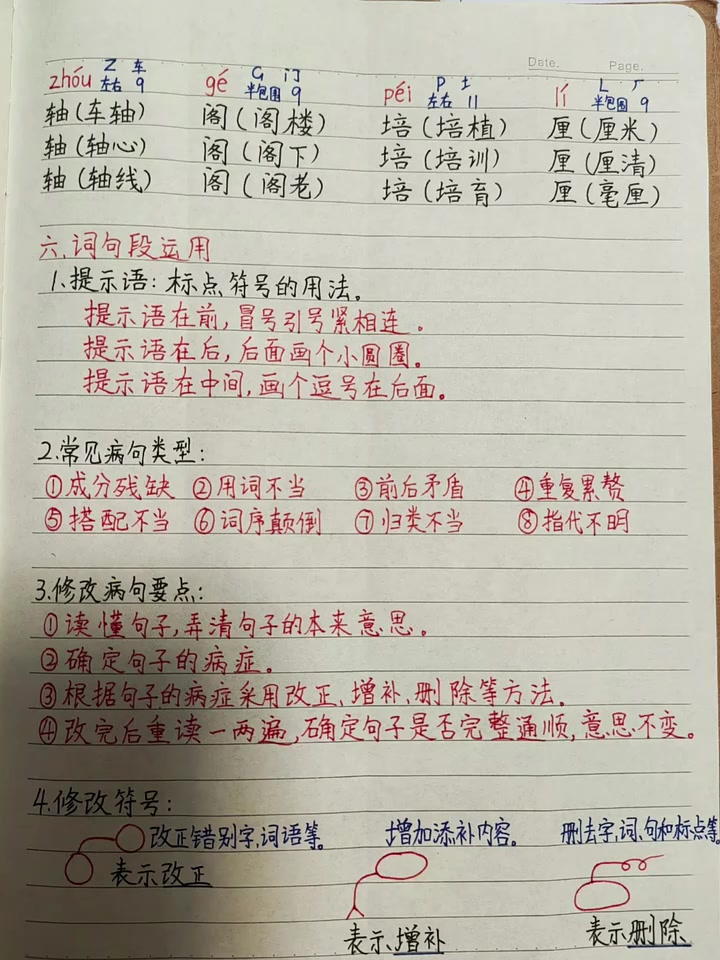 Date. Page.
zhóu Z 车 gé G 门 péi P 土 lí L 厂
左右 9 半包围 9 左右 11 半包围 9
轴(车轴) 阁(阁楼) 培(培植) 厘(厘米)
轴(轴心) 阁(阁下) 培(培训) 厘(厘清)
轴(轴线) 阁(阁老) 培(培育) 厘(毫厘)
六、词句段运用
1、提示语:标点符号的用法。
提示语在前,冒号引号紧相连。
提示语在后,后面画个小圆圈。
提示语在中间,画个逗号在后面。
2.常见病句类型:
①成分残缺 ②用词不当 ③前后矛盾 ④重复累赘
⑤搭配不当 ⑥词序颠倒 ⑦归类不当 ⑧指代不明
3.修改病句要点:
①读懂句子,弄清句子的本来意思。
②确定句子的病症。
③根据句子的病症采用改正、增补、删除等方法。
④改完后重读一两遍,确定句子是否完整通顺,意思不变。
4.修改符号:
改正错别字、词语等。 增加添补内容。 删去字、词、句和标点等。
表示改正
表示增补 表示删除